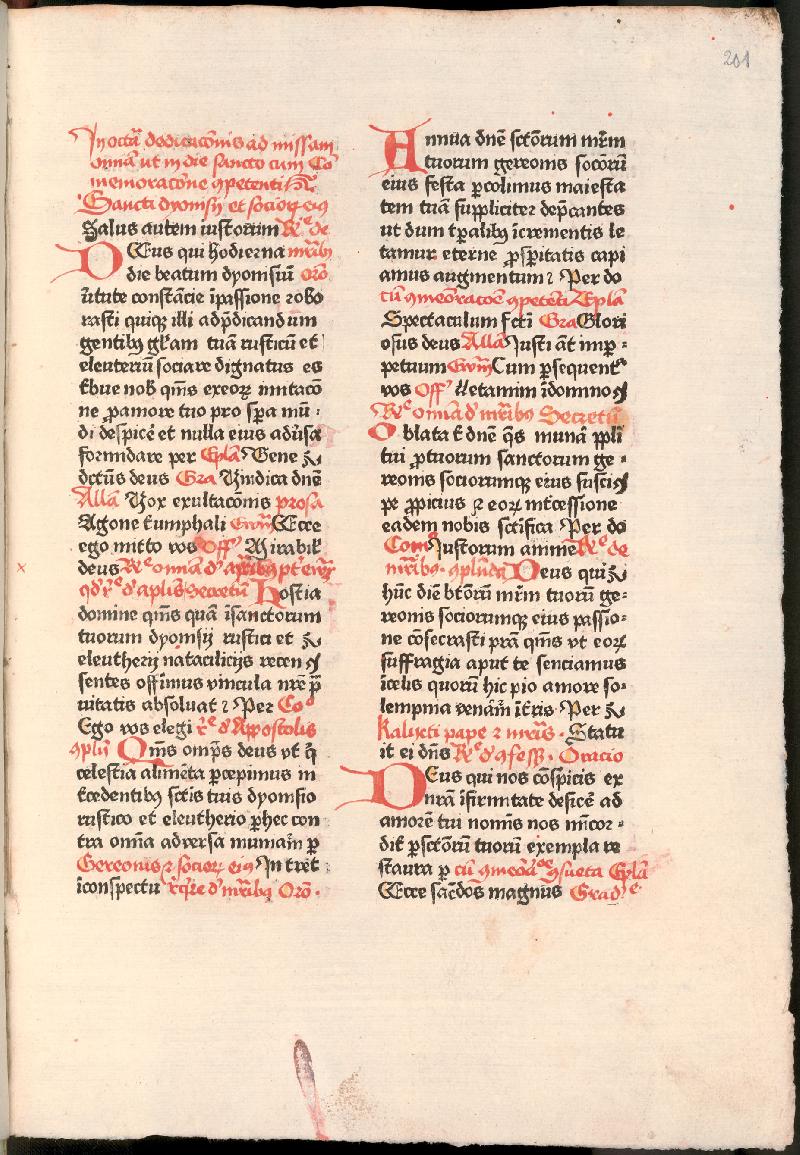 201
In octā dedicacōnis ad missam
omīa ut in die sancto cum Co
memoracōne ꝯpetenti
Sancti dyonisij et socioꝝ eiꝰ
Salus autem iustorum Rͤ de
DEus qui hodierna mr̄ibꝫ
die beatum dyonisiū orō
v̄tute constācie ī passione robo
rasti quiqꝫ illi ad p̄dicandum
gentibꝫ gl̄iam tuā rusticū et
eleuteriū sociare dignatus es
t̄bue nob̄ qm̄s ex eoꝝ imitacō
ne ꝓ amore tuo prospera mū
di despicē et nulla eius adūsa
formidare per Epl̄a Gens
dc̄tūs deus Gra Vindica dn̄e
Allā Vox exultacōnis prosa
Agone t̄umphali Ewm̄ Ecce
ego mitto vos Off Mirabil̄
deus Rͤ omīa d' mr̄ibꝫ pt' ewm̄
qd' rͤ d' aplīs Secretū Hostia
domine qm̄s quā ī sanctorum
tuorum dyonisij rustici et
eleutherij nataliciis recen
sentes offīmus vincula nr̄e p̄
uitatis absoluat Per Coō
Ego vos elegi rͤ d' Appostolis
ꝯplū Qm̄s omp̄s deus vt q̄
celestia alimēta ꝑcepimus in
t̄cedentibꝫ sc̄tis tuis dyonisio
rustico et eleutherio ꝑ hec con
tra omīa adversa muniam̄ ꝑ
Gereonis ⁊ socioꝝ eiꝰ Intret
ī conspectu rͤqͥre d' mr̄ibꝫ Orō.
Annua dn̄e sctōrum mr̄m
tuorum gereonis socorū
eius festa ꝑcolimus maiesta
tem tuā suppliciter dep̄cantes
ut dum tꝑalibꝫ īcrementis le
tamur eterne ꝓspitatis capi
amus augmentum Per do
cū ꝯmeōracōe ꝯpetēti Epl̄a
Spectaculum fcti Gra Glori
osus deus Allā Iusti āt in ꝑ
petuum Ewm̄ Cum ꝑsequent'
vos Off' Letamini ī domno
Rͤ omīa d' mr̄ibꝫ Secretū
Oblata t̄ dn̄e qs̄ munā ppl̄i
tui ꝓ tuorum sanctorum ge
reonis sociorumqꝫ eius susci
pe ꝓpicius ⁊ eoꝝ int̄cessione
eadem nobis sct̄ifica Per do
Com̄ Iustorum anime Rͤ de
mr̄ibus. ꝯplendā Deus qui
hūc diē btōrū mr̄m tuorū ge
reonis sociorumqꝫ eius passio
ne cōsecrasti pr̄a qm̄s vt eoꝝ
suffragia aput te senciamus
ī celis quorū hic pio amore so
lempnia venām̄ ī tr̄is Per
Kalixti pape ⁊ mr̄is. Statu
it ei dn̄s Rͤ d' ꝯfess. Oracio
DEus qui nos cōspicis ex
nr̄a īfirmitate deficē ad
amorē tui nomīs nos mīcor
dit' ꝑ sctōrū tuorū exempla re
staura ꝑ cū ꝯmeōae ꝯsueta Epl̄a
Ecce sac̄dos magnus Grad'ͤ